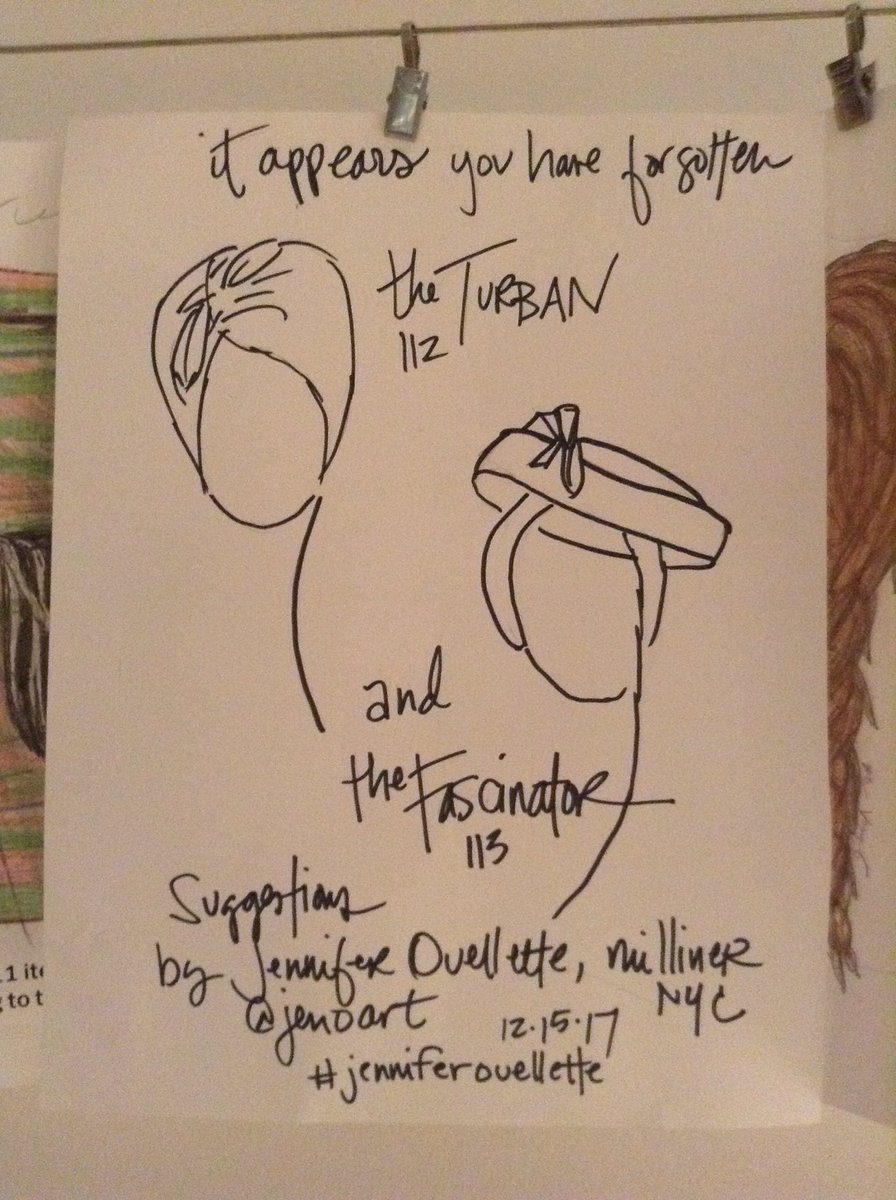 it appears you have forgotten
the TURBAN
112
and
the Fascinator
113
Suggestions
by Jennifer Ouellette, milliner
NYC
@jenoart
12.15.17
#jenniferouellette
1 ite
to t